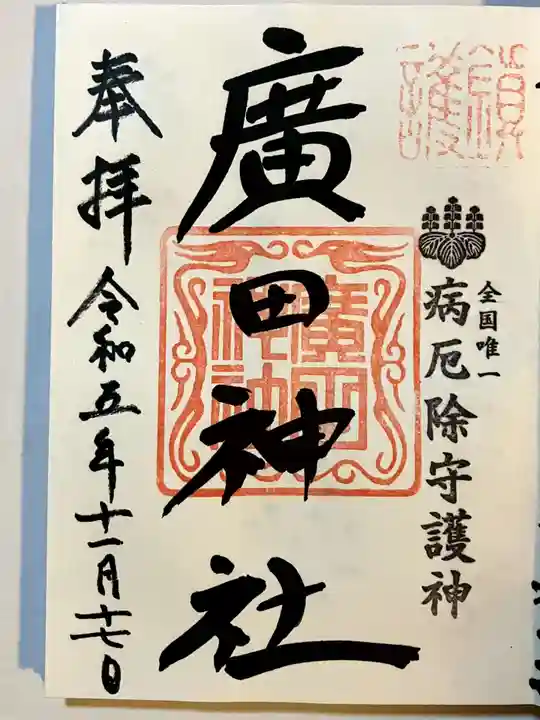 全国唯一
病厄除守護神
廣田神社
廣田神社
奉拝
令和五年十一月十七日